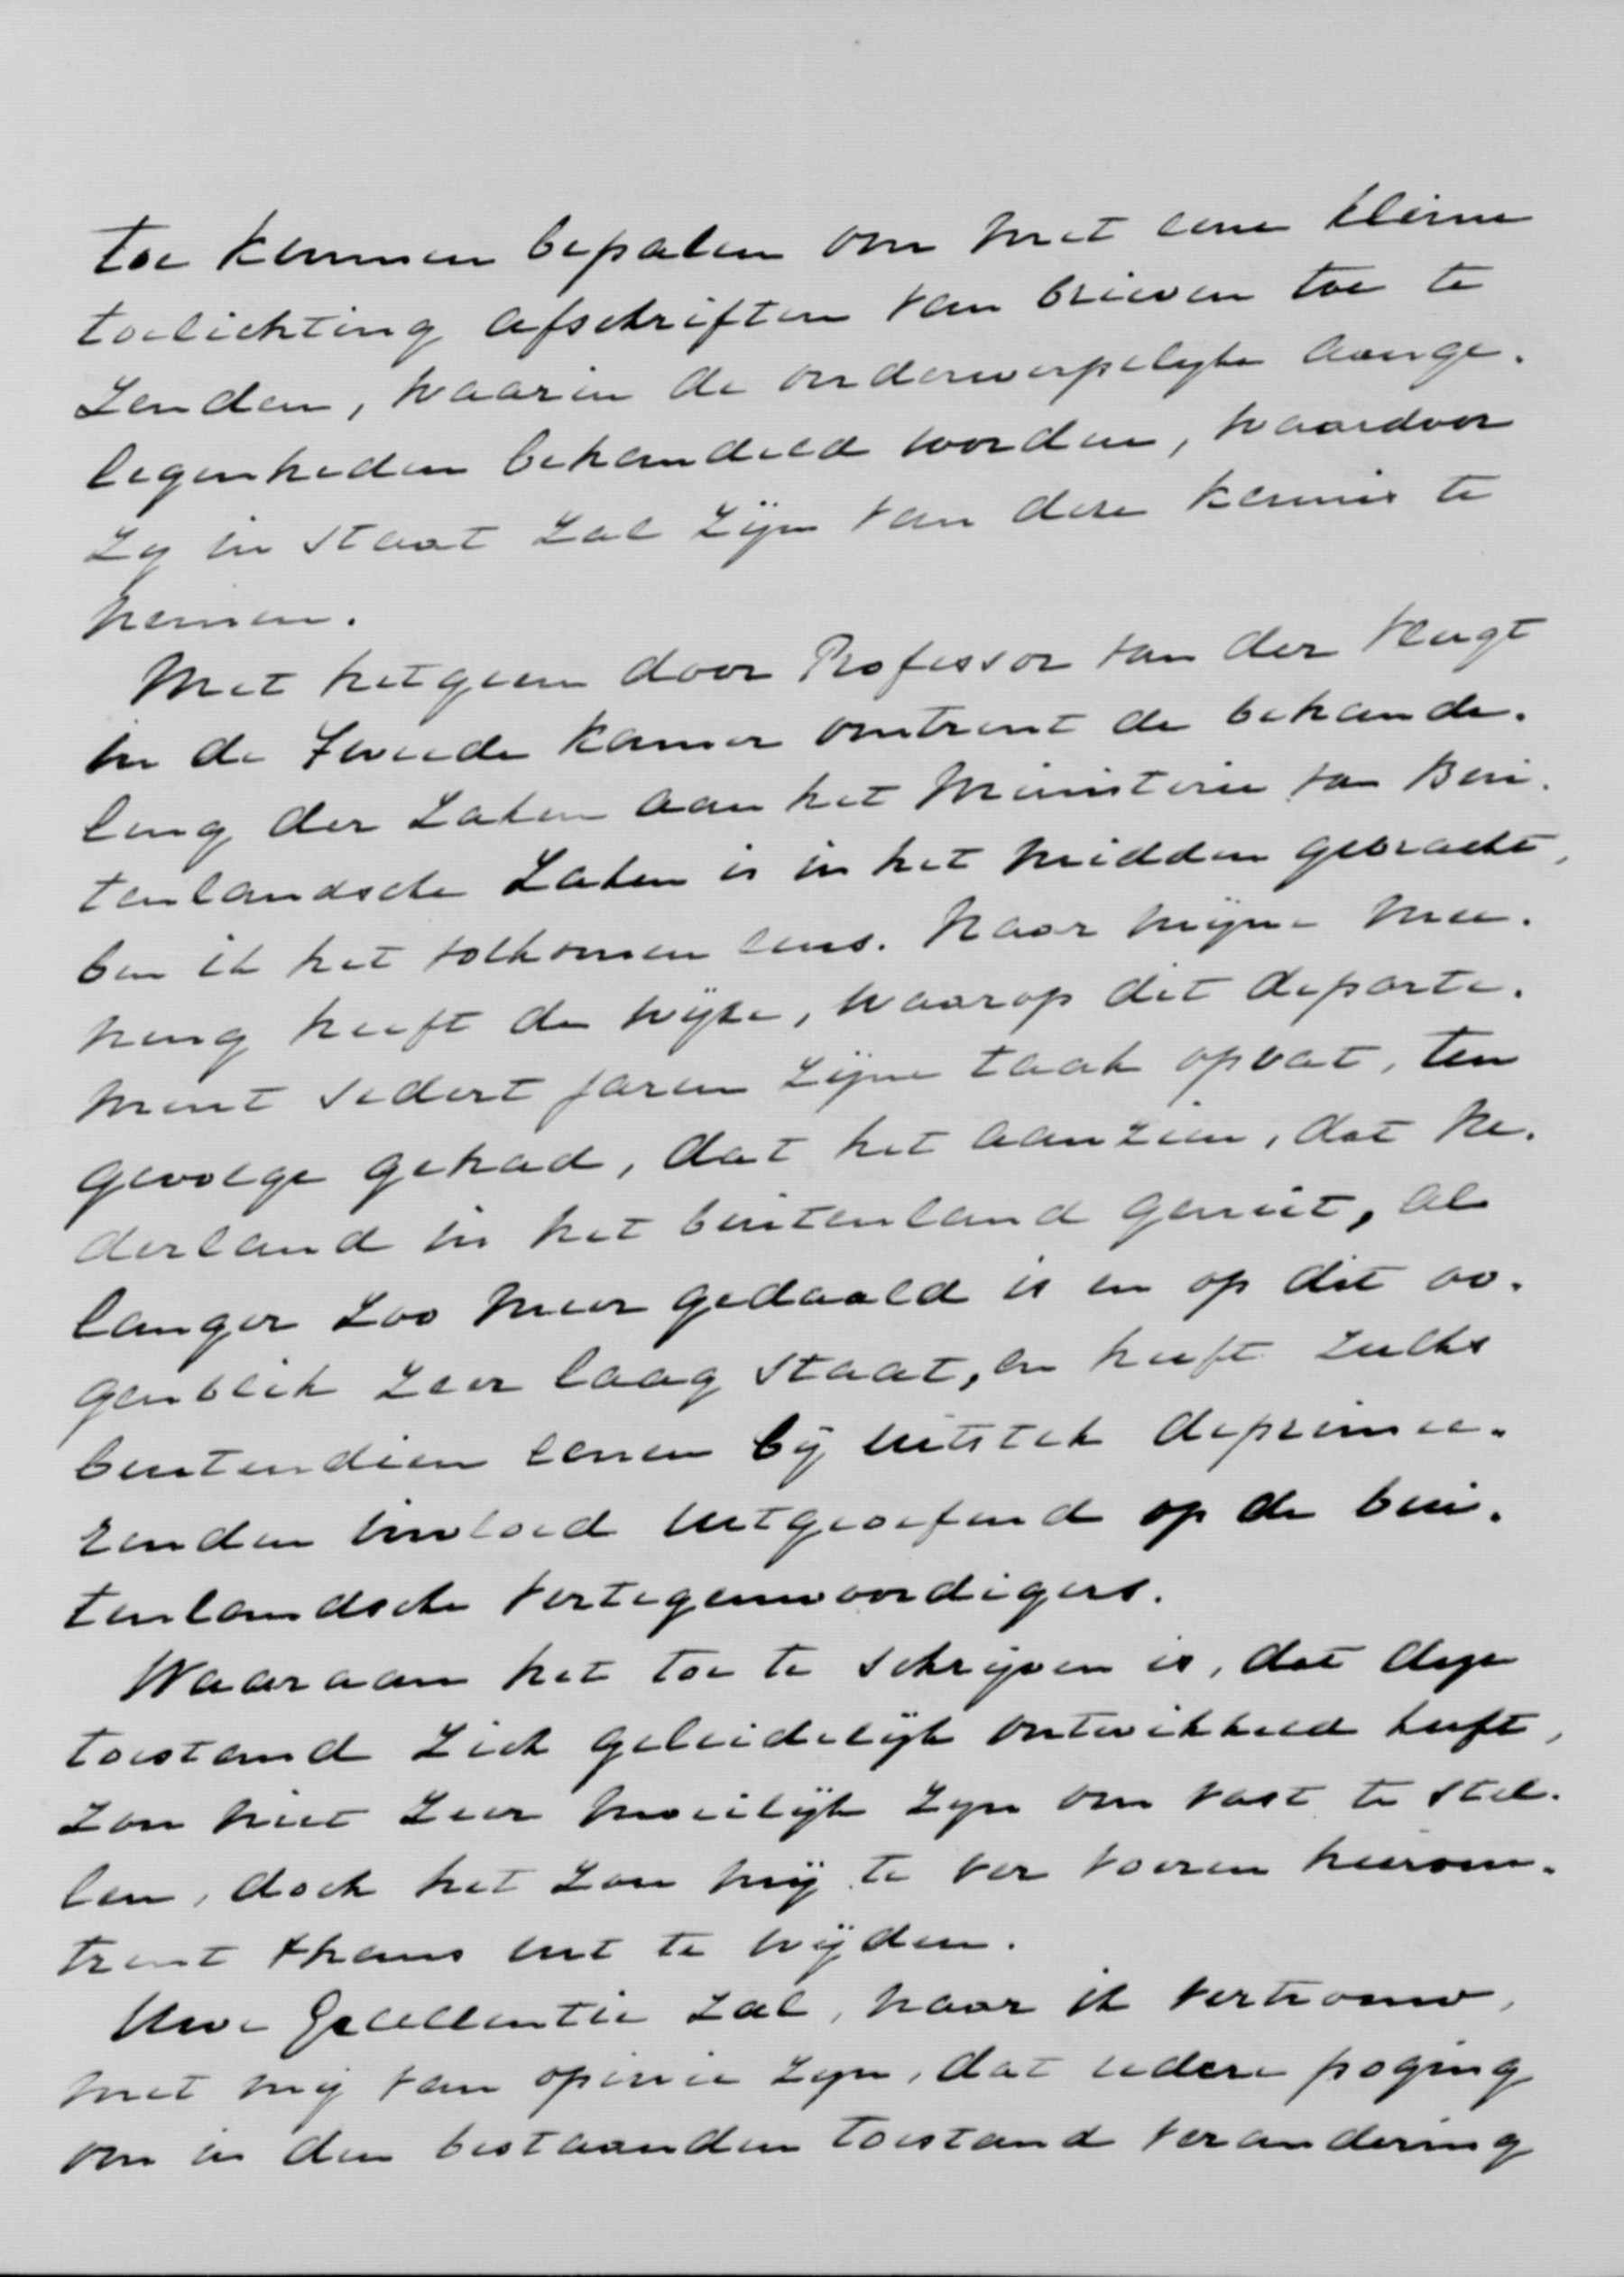 toe kunnen bepalen om met eene kleine
toelichting afschriften van brieven toe te
zenden, waarin de onderwerpelyke aange-
legenheden behandeld worden, waardoor
zy in staat zal zijn van deze kennis te
nemen.
Met hetgeen door Professor van der Vlugt
in de Tweede Kamer omtrent de behande-
ling der zaken aan het Ministerie van Bui-
tenlandsche Zaken is in het midden gebracht,
ben ik het volkomen eens. Naar mijne mee-
ning heeft de wijze, waarop dit departe-
ment sedert jaren zijne taak opvat, ten
gevolge gehad, dat het aanzien, dat Ne-
derland in het buitenland geniet, al
langer zoo meer gedaald is en op dit oo-
genblik zeer laag staat, en heeft zulks
buitendien eenen bij uitstek deprimee-
renden invloed uitgeoefend op de bui-
tenlandsche vertegenwoordigers.
Waaraan het toe te schrijven is, dat deze
toestand zich geleidelijk ontwikkeld heeft,
zou niet zeer moeilijk zyn om vast te stel-
len, doch het zou mij te ver voeren hierom-
trent thans uit te wijden.
Uwe Excellentie zal, naar ik vertrouw,
met mij van opinie zyn, dat iedere poging
om in den bestaanden toestand verandering